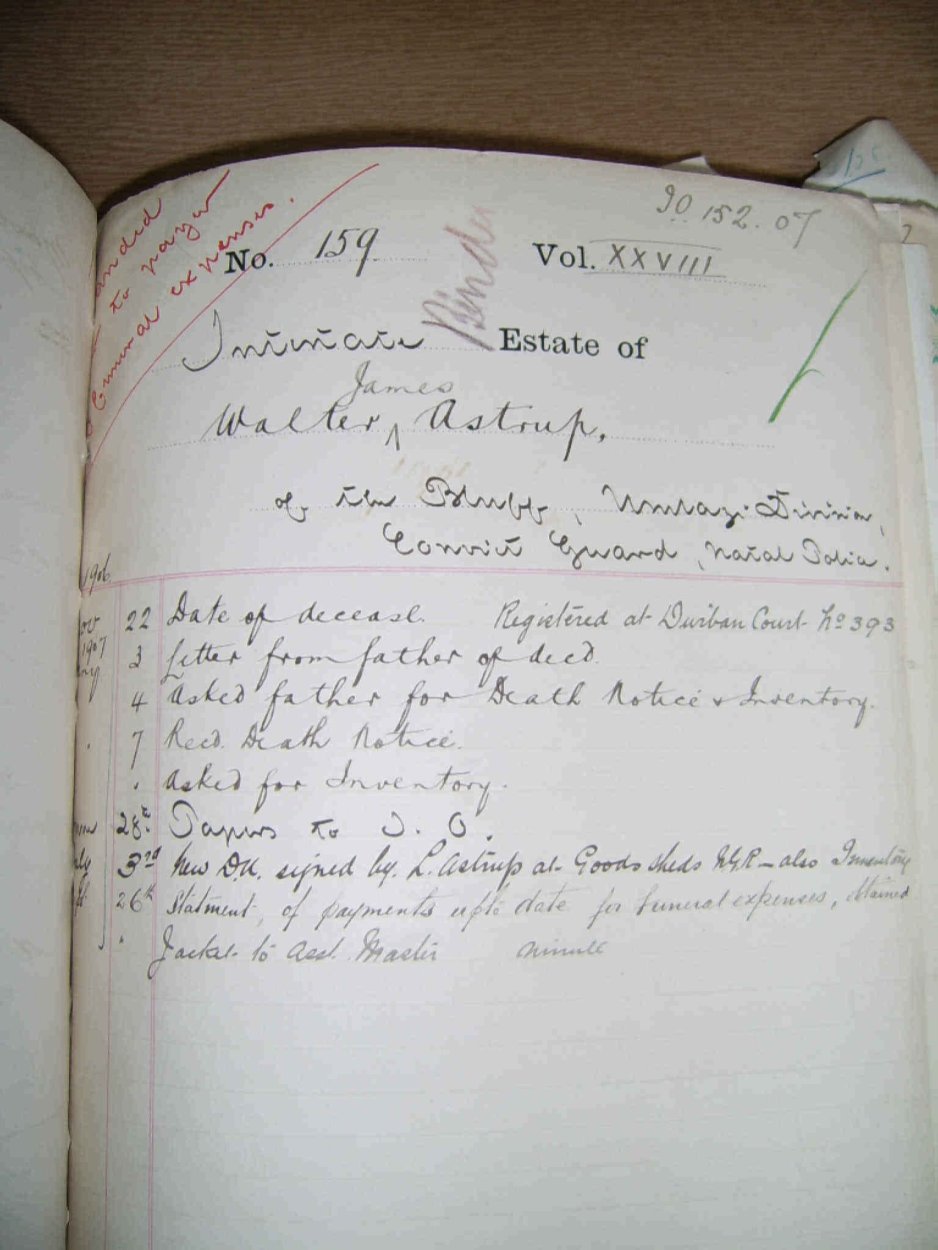 to pay
expenses.
90 152.07
No. 159 Vol. XXVIII
Intestate Estate of
James
Walter ʌ Astrup,
of the Bluff, Umlazi Division,
Convict Guard, Natal Police.
1906
22 Date of decease. Registered at Durban Court No 393
1907
3 Letter from father of decd.
4 Asked father for Death Notice & Inventory.
7 Recd. Death Notice.
" Asked for Inventory.
28th Papers to
3rd New D.N. signed by L. Astrup at Goods sheds N.G.R - also Inventory
26th Statment, of payments upto date for funeral expenses, obtained
Jacket to Asst. Master minute